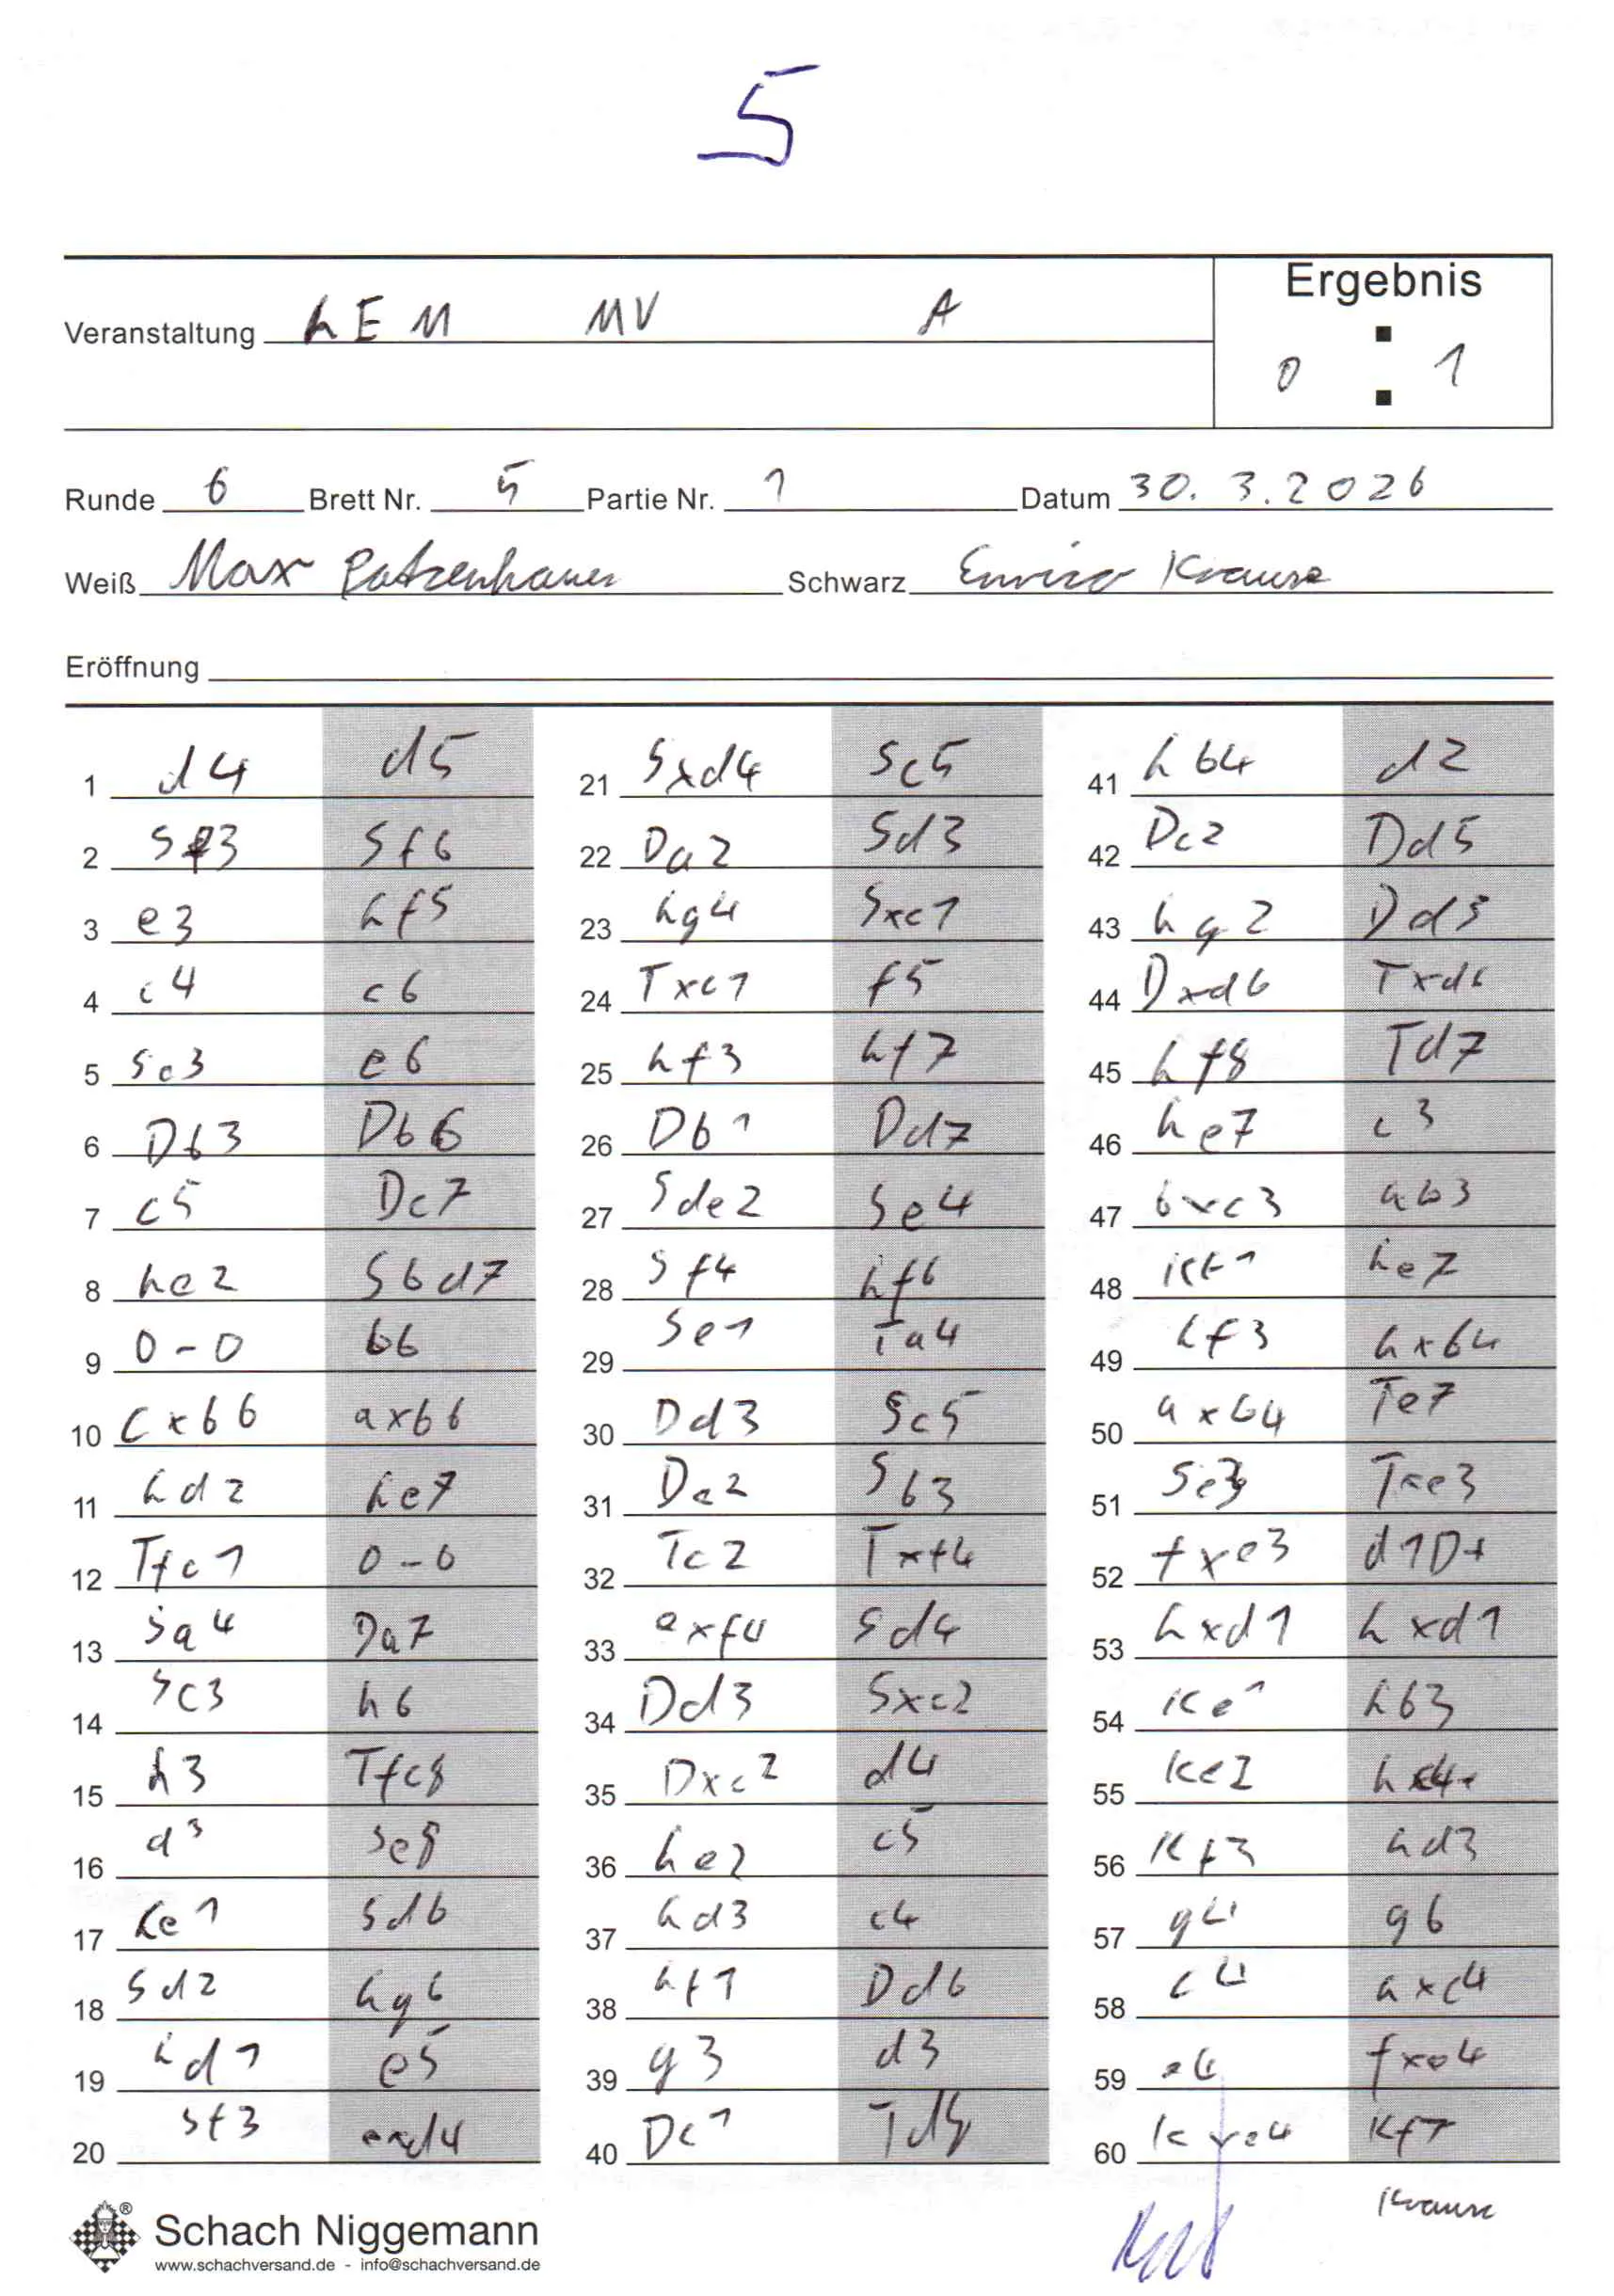 5
Ergebnis
Veranstaltung LEM MV A
0 : 1
Runde 6 Brett Nr. 5 Partie Nr. 1 Datum 30.3.2026
Weiß Max Patzenhauer Schwarz Enrico Krause
Eröffnung
1 d4 d5
2 Sf3 Sf6
3 e3 Lf5
4 c4 c6
5 Sc3 e6
6 Db3 Db6
7 c5 Dc7
8 Le2 Sbd7
9 0-0 b6
10 cxb6 axb6
11 Ld2 Le7
12 Tfc1 0-0
13 Sa4 Da7
14 Sc3 h6
15 h3 Tfc8
16 a3 Se8
17 Le1 Sd6
18 Sd2 Lg6
19 Ld1 e5
20 Sf3 exd4
21 Sxd4 Sc5
22 Da2 Sd3
23 Lg4 Sxc1
24 Txc1 f5
25 Lf3 Lf7
26 Db1 Dd7
27 Sde2 Se4
28 Sf4 Lf6
29 Se1 Ta4
30 Dd3 Sc5
31 De2 Sb3
32 Tc2 Txf4
33 exf4 Sd4
34 Dd3 Sxc2
35 Dxc2 d4
36 Le2 c5
37 Ld3 c4
38 Lf1 Dd6
39 g3 d3
40 Dc1 Td8
41 Lb4 d2
42 Dc2 Dd5
43 Lg2 Dd3
44 Dxd6 Txd6
45 Lf8 Td7
46 Le7 c3
47 bxc3 Lb3
48 Kf1 Le7
49 Lf3 Lxb4
50 axb4 Te7
51 Se3 Txe3
52 fxe3 d1D+
53 Lxd1 Lxd1
54 Ke1 Lb3
55 Ke2 Lc4+
56 Kf3 Ld3
57 g4 g6
58 c4 Lxc4
59 e4 fxe4
60 Kxe4 Kf7
Krause
Schach Niggemann
www.schachversand.de - info@schachversand.de